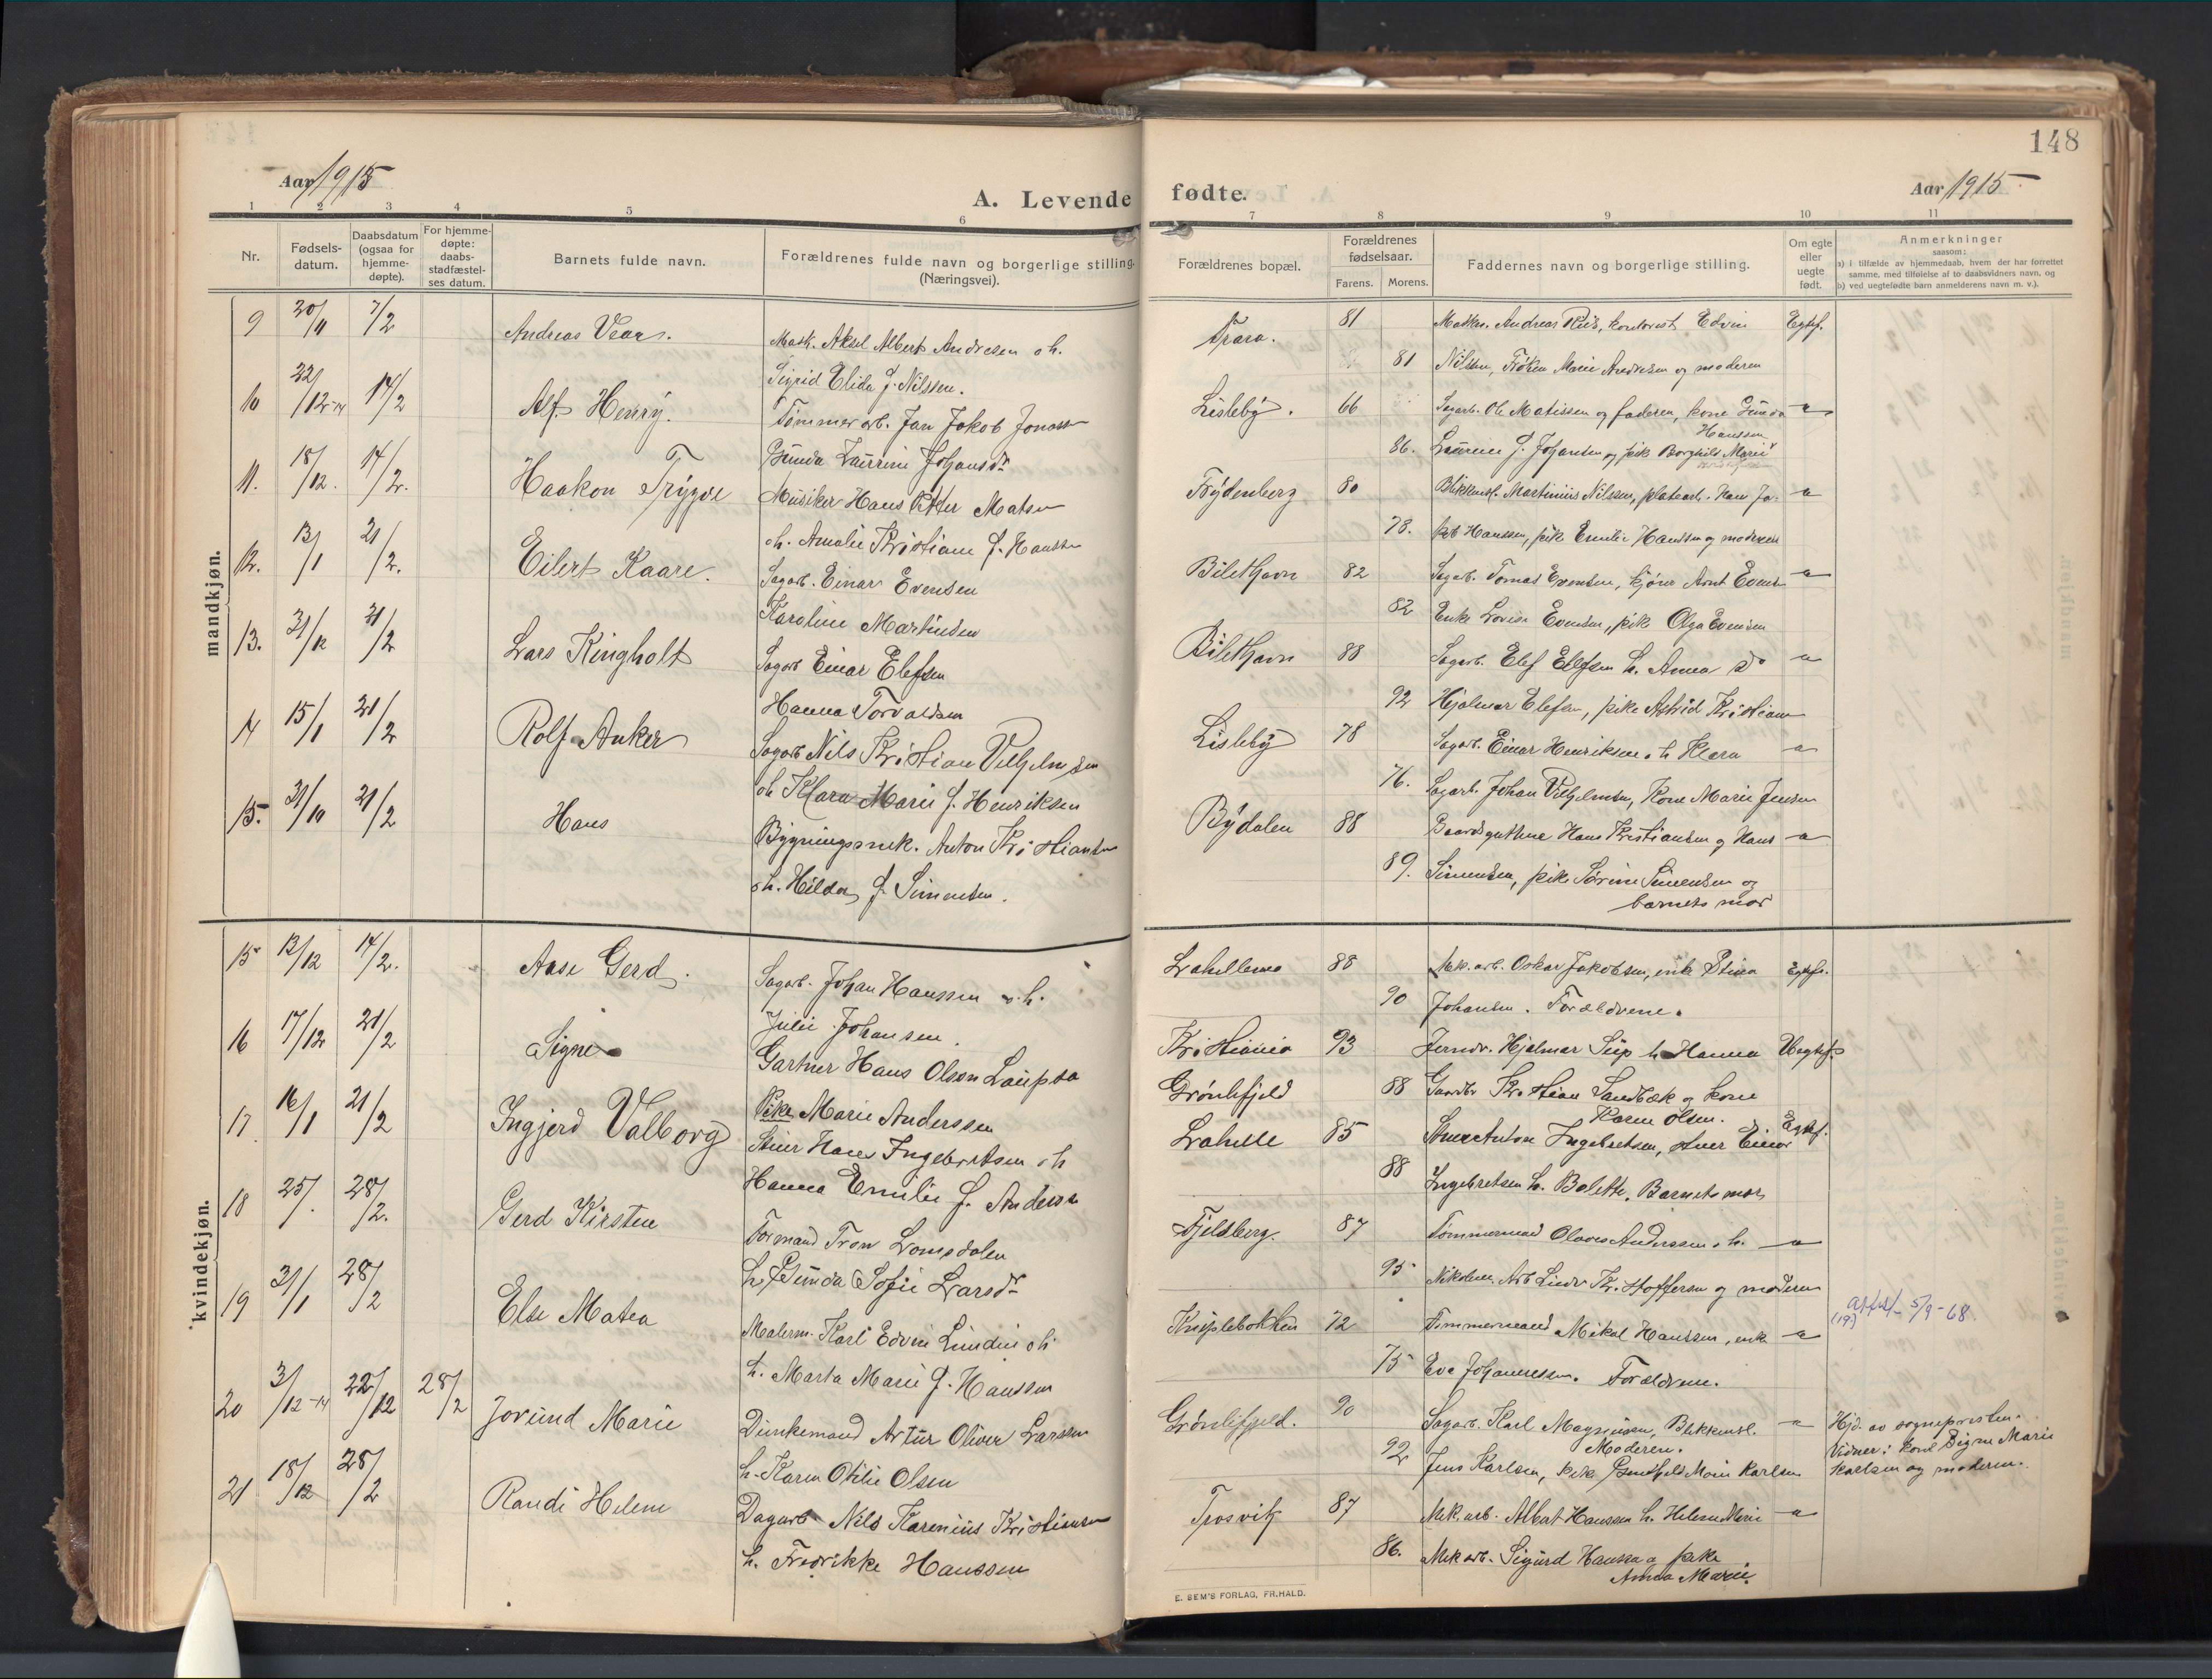 148
Aar 1915
A. Levende
fødte.
Aar 1915
1 2 3 4 5 6
7 8 9 10 11
Nr.
Fødsels-
datum.
Daabsdatum
(ogsaa for
hjemme-
døpte).
For hjemme-
døpte:
daabs-
stadfæstel-
ses datum.
Barnets fulde navn.
Forældrenes fulde navn og borgerlige stilling.
(Næringsvei).
Forældrenes bopæl.
Forældrenes
fødselsaar.
Farens. Morens.
Faddernes navn og borgerlige stilling.
Om egte
eller
uegte
født.
Anmerkninger
saasom:
a) I tilfælde av hjemmedaab, hvem der har forrettet
samme, med tilføielse af to daabsvidners navn, og
b) ved uegtefødte barn anmelderens navn m. v.).
mandkjøn.
9 20/11 7/2 Andreas
Mask. Aksel Albert Andresen o h.
Sigrid Elida f. Nilssen.
Trara. 81 Andreas kontorist Edvin Egtef.
81 Nilssen, Frøken Marie Andresen og moderen
10 22/12-14 14/2 Alf Henry.
Tømmerarb. Jan Jakob
Gunda Laurine Johansdr
Lisleby. 66 Sagarb. Ole Matissen og faderen, kone Gunda
Hanssen
86. Laurene f. Johansen og pik Borghild Marie
11. 18/12. 14/2. Haakon Trygve
Musiker Hans Peter
o h. Amalie Kristiane f. Hansen
Frydenberg 80 Blikkensl. Martinius Nilssen, platearb. Han Ja-
78. kob Hanssen, pik Emilie Hanssen og moderen
12. 13/1 21/2. Eilert Kaare.
Sagarb. Einar Evensen
Karoline Martinsen
82 Sagarb. Tomas Evensen, kjører Arnt
82 Enke Lovise Evensen, pik Olga Evensen
13. 31/12 21/2 Lars Kingholt
Sagarb Einar Elefsen
Hanna Torvaldsen
88 Sagarb. Elef Elefsen h. Anna do
92 Hjalmar Elefsen, pike Astrid Kristiansen
14 15/1 21/2 Rolf Anker
Sagarb Nils Kristian Vilhelmsen
oh Klara Marie f. Henriksen
Lisleby 78 Sagarb. Einar Henriksen o h Klara
76. Sagarb. Johan Vilhelmsen, Kone Marie Jensen
15. 31/10 21/2 Hans
Bygningssnek. Anton Kristiansen
o h. Hilda f. Simensen.
Bydalen 88 Gaardsguttene Hans Kristiansen og Hans
89. Simensen, pike Sørine Simensen og
barnets mor
kvindekjøn.
15 12/12 14/2. Aase Gerd.
Sagarb. Johan Hanssen o. h.
Julie Johansen.
Lahellemo 88 Mek. arb. Oskar Jakobsen, enk Stina Egtef.
90 Johansen. Forældrene.
16 17/12 21/2 Signe
Gartner Hans Olson
Pike Marie Anderssen
Kristiania 93 Jernv. Hjalmar h Hanna Uegtef.
Grønlifjeld 88 Gaardbr Kristian Sandbæk og kone
Karen Olsen.
17. 16/1 21/2 Ingjerd Valborg
Hans Ingebretsen o h
Hanna Emilie f. Andersen
Lahelle 85 Anton Ingebretsen, Einar Egtef.
88 Ingebretsen h. Bolette. Barnets mor
18 25/. 28/2. Gerd Kirsten
Formand Tron Lomsdalen
h. Gunda Sofie Larsdr
Fjeldberg. 87 Tømmermand Olaves Anderssen o h.
95 Nikoline. Arb Kristoffersen og moderen
19 31/1 28/2 Else Matea
Malerm. Karl Edvin Lundin oh
h. Marta Marie f. Hanssen
72 Tømmermand Mikal Hanssen, enk
attest 5/9-68
(19)
75 Eva Johannessen. Forældrene.
20 3/12-14 22/12 28/2 Jorund Marie
Dunkemand Artur Oliver Larssen
h. Karen Otilie Olsen
Grønlifjeld. 90 Sagarb. Karl Magnusen, Blikkensl.
Moderen.
92 Jens Karlsen, pike Marie Karlsen
Hjd. av sognepresten.
Vidner: kone Signe Marie
Karlsen og moderen.
21 18/12 28/2 Randi Helene
Dagarb. Nils Karenius Kristiansen
h. Fredrikke Hanssen
Trosvik 87 Mek. arb. Albert Hanssen h. Helene Marie
86. Mek arb. Sigurd Hanssen pike
Anna Marie.
E. SEM'S FORLAG, FR.HALD.